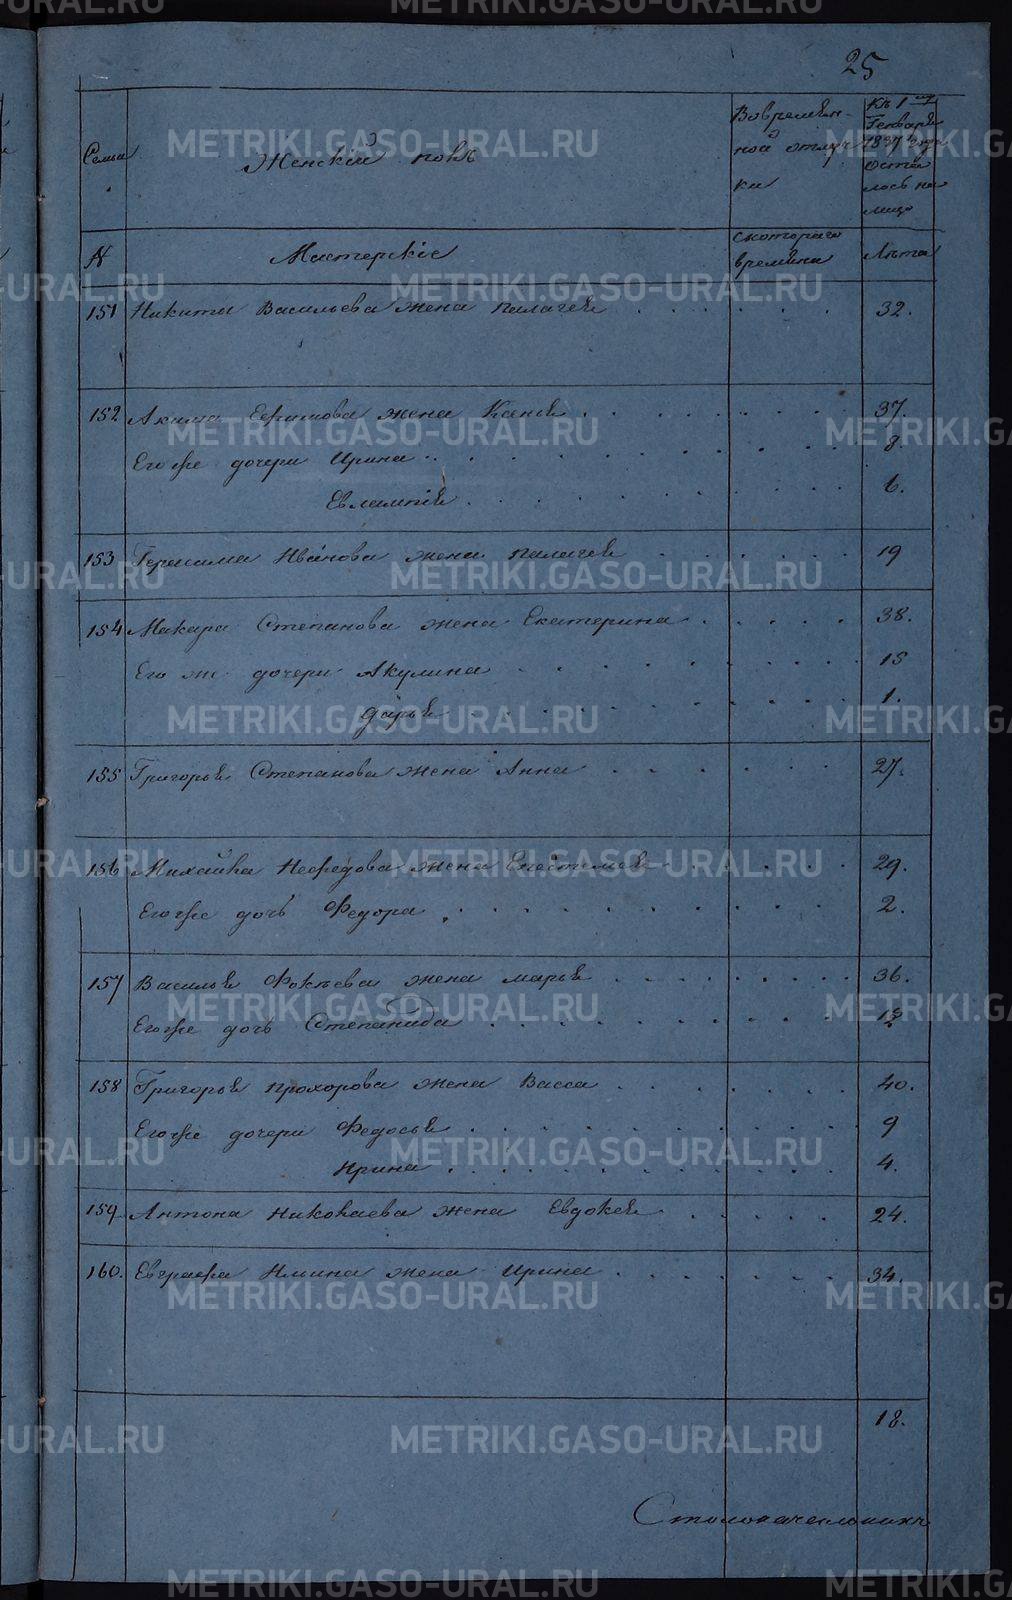 25
Семьи
Женский полъ
Во времян-
ной отлуч
ки
Къ 1му
Генваря
1837 года
оста
лось на
лицо
№
Мастерскіе
съ котораго
времяни
Лѣта
151 Никиты Васильева жена Палагея 32.
152 Акима Ефимова жена Ксенія 37.
Его же дочери Ирина 8.
Евлампія 6.
153 Герасима Иванова жена Палагея 19
154 Макара Степанова жена Екатерина 38.
Его же дочери Акулина 15
Дарья 1.
155 Григорья Степанова жена Анна 27.
156 Михайла Нефедова жена Епестимея 29.
Его же дочь Федора 2.
157 Василья Фокѣева жена Марья 36.
Его же дочь Степанида
158 Григорья Прохорова жена Васса 40.
Его же дочери Федосья 9
Ирина 4.
159 Антона Николаева жена Евдокея 24.
160. Евграфа Ильина жена Ирина 34.
18.
Столоначельникъ
METRIKI.GASO-URAL.RU